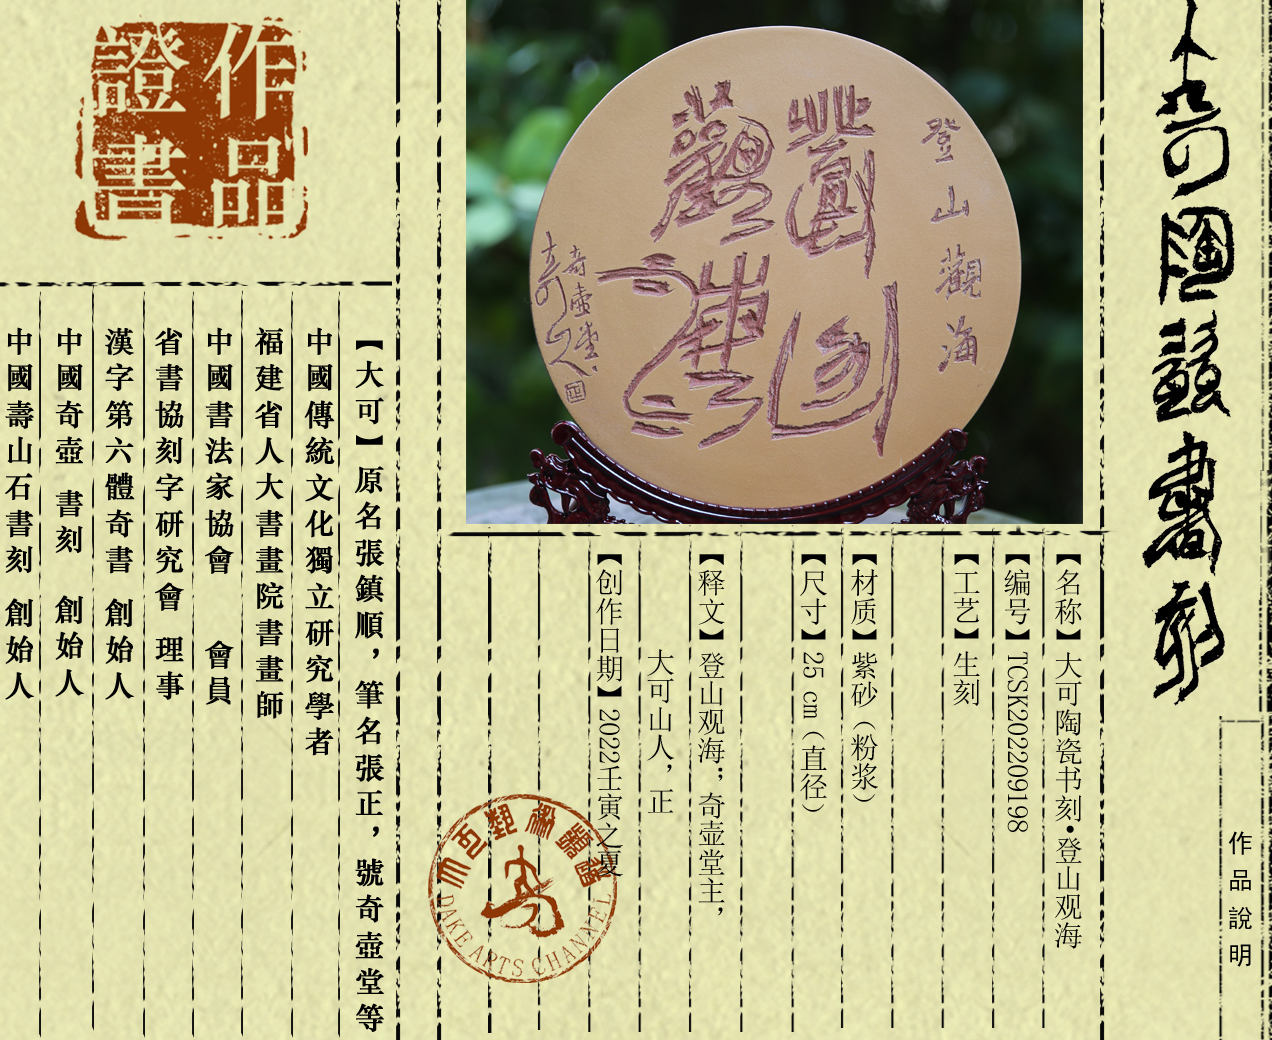 大可陶瓷書刻
作品說明
登山觀海
奇壺堂
【名称】大可陶瓷书刻•登山观海
【编号】TCSK202209198
【工艺】生刻
【材质】紫砂（粉浆）
【尺寸】25 cm（直径）
【释文】登山观海；奇壶堂主，
大可山人，正
【创作日期】2022壬寅之夏
大可藝術頻道
DAKE ARTS CHANNEL
作品
證書
【大可】原名張鎮順，筆名張正，號奇壺堂等
中國傳統文化獨立研究學者
福建省人大書畫院書畫師
中國書法家協會 會員
省書協刻字研究會 理事
漢字第六體奇書 創始人
中國奇壺 書刻 創始人
中國壽山石書刻 創始人